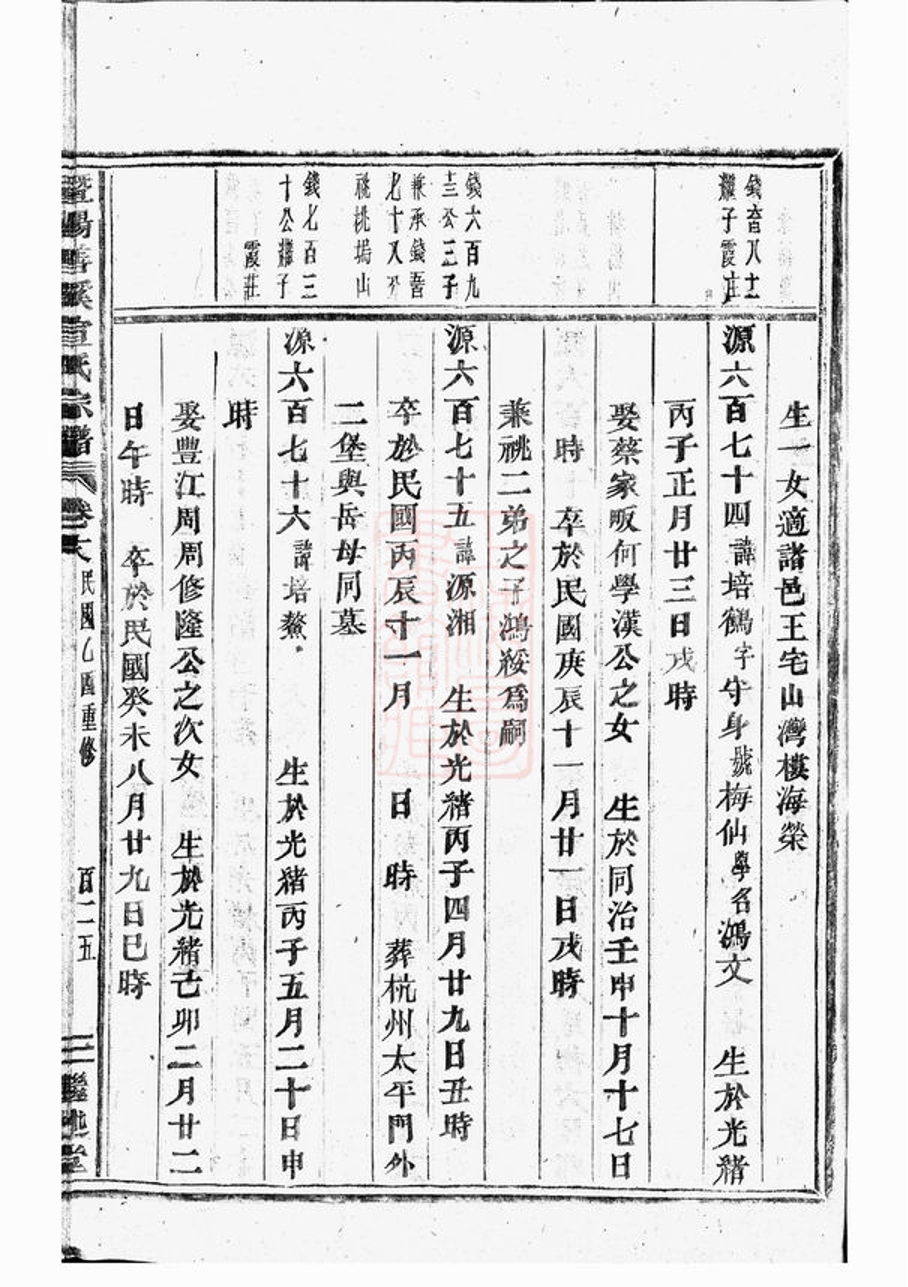 生一女適諸邑王宅山灣樓海榮
錢壹八十二
繼子霞庄
源六百七十四諱培鶴字守身號梅仙學名鴻文 生於光緒
丙子正月廿三日戌時
娶蔡家畈何學漢公之女 生於同治壬申十月十七日
時 卒於民國庚辰十一月廿一日戌時
兼祧二弟之子鴻綏爲嗣
錢六百九
十三公三子
兼承錢
七十八公
祧桃塢山
源六百七十五諱源湘 生於光緒丙子四月廿九日丑時
卒於民國丙辰十一月 日 時 葬杭州太平門外
二堡與岳母同墓
錢七百三
十公繼子
霞莊
源六百七十六諱培鰲 生於光緒丙子五月二十日申
時
娶豐江周周修隆公之次女 生於光緒己卯二月廿二
日午時 卒於民國癸未八月廿九日巳時
暨陽善溪 氏宗譜 卷 民國乙酉重修 百二五 繼述堂